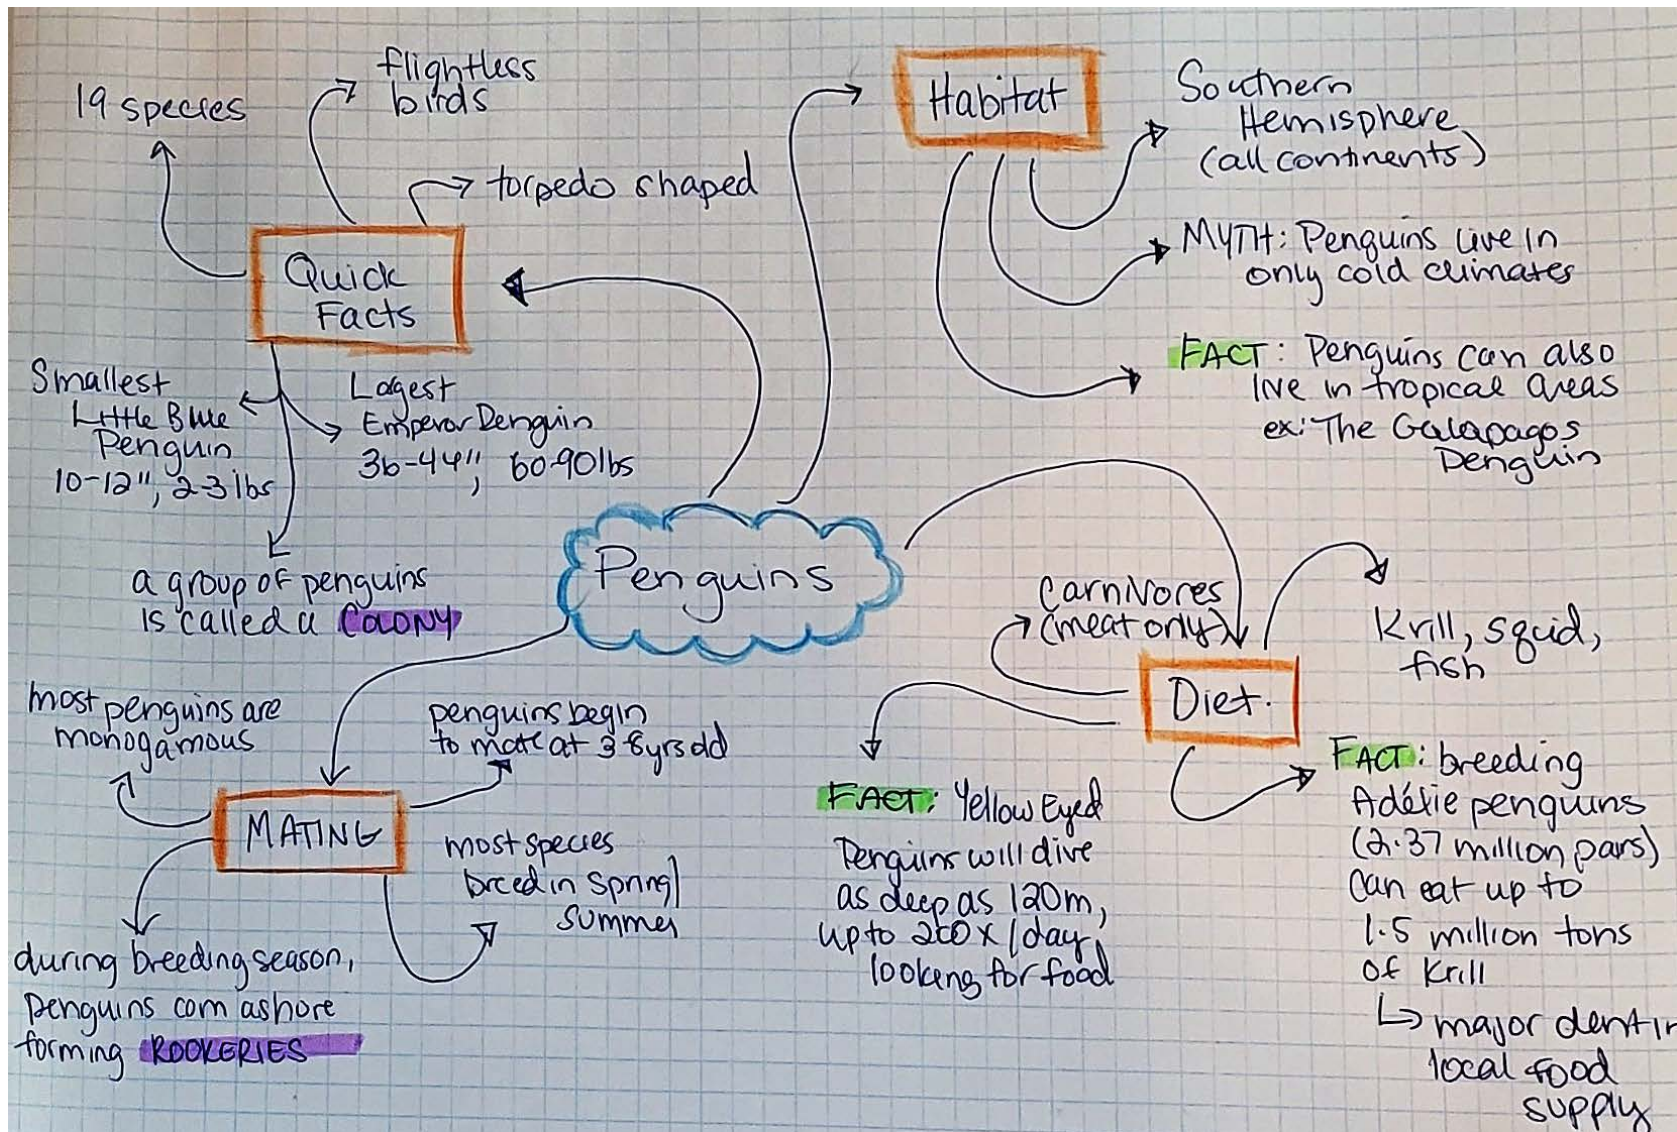 Penguins
Quick
Facts
19 species
flightless
birds
torpedo shaped
Smallest
Little Blue
Penguin
10-12", 2-3 lbs
Lagest
Emperor Penguin
36-44", 60-90lbs
a group of penguins
is called a COLONY
Habitat
Southern
Hemisphere
(all continents)
MYTH: Penguins live in
only cold climates
FACT: Penguins can also
live in tropical areas
ex: The Galapagos
Penguin
Diet.
Carnivores
(meat only)
Krill, squid,
fish
FACT: Yellow Eyed
Penguins will dive
as deep as 120m,
up to 200x/day,
looking for food
FACT: breeding
Adélie penguins
(2.37 million pairs)
can eat up to
1.5 million tons
of Krill
major dent in
local food
supply
MATING
most penguins are
monogamous
penguins begin
to mate at 3-8yrs old
most species
breed in Spring/
summer
during breeding season,
penguins com ashore
forming ROOKERIES